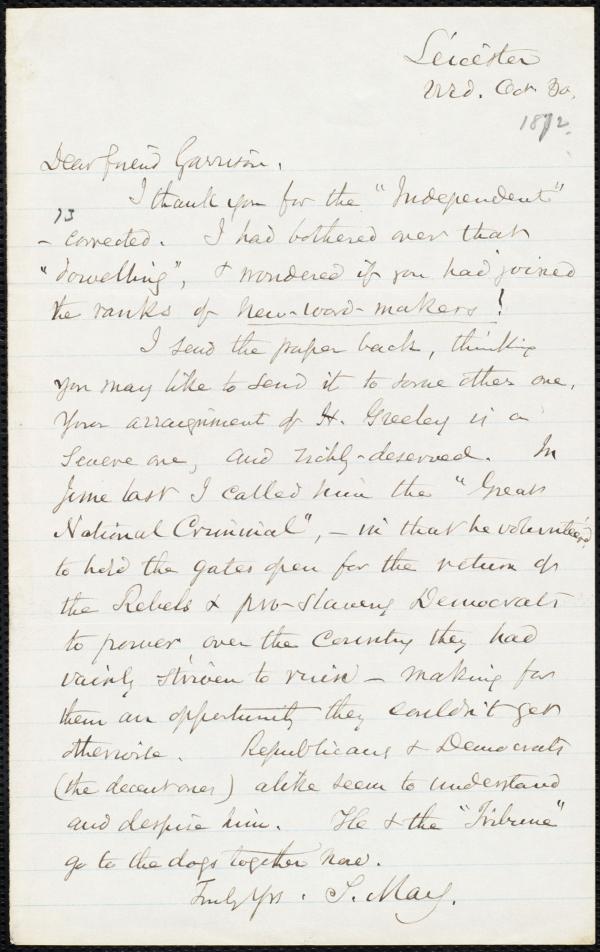 Leicester
Wed. Oct. 30.
1872.
Dear friend Garrison,
I thank you for the "Independent"
73
- corrected. I had bothered over that
"dowelling", & wondered if you had joined
the ranks of new-word-makers!
I send the paper back, thinking
you may like to send it to some other one.
Your arraignment of H. Greeley is a
severe one, and richly-deserved. In
June last I called him the "Great
National Criminal", - in that he volunteered
to hold the gates open for the return of
the Rebels & pro-slavery Democrats
to power over the Country they had
vainly striven to ruin - making for
them an opportunity they couldn't get
otherwise. Republicans & Democrats
(the decent ones) alike seem to understand
and despise him. He & the "Tribune"
go to the dogs together now.
Truly Yrs. S. May.